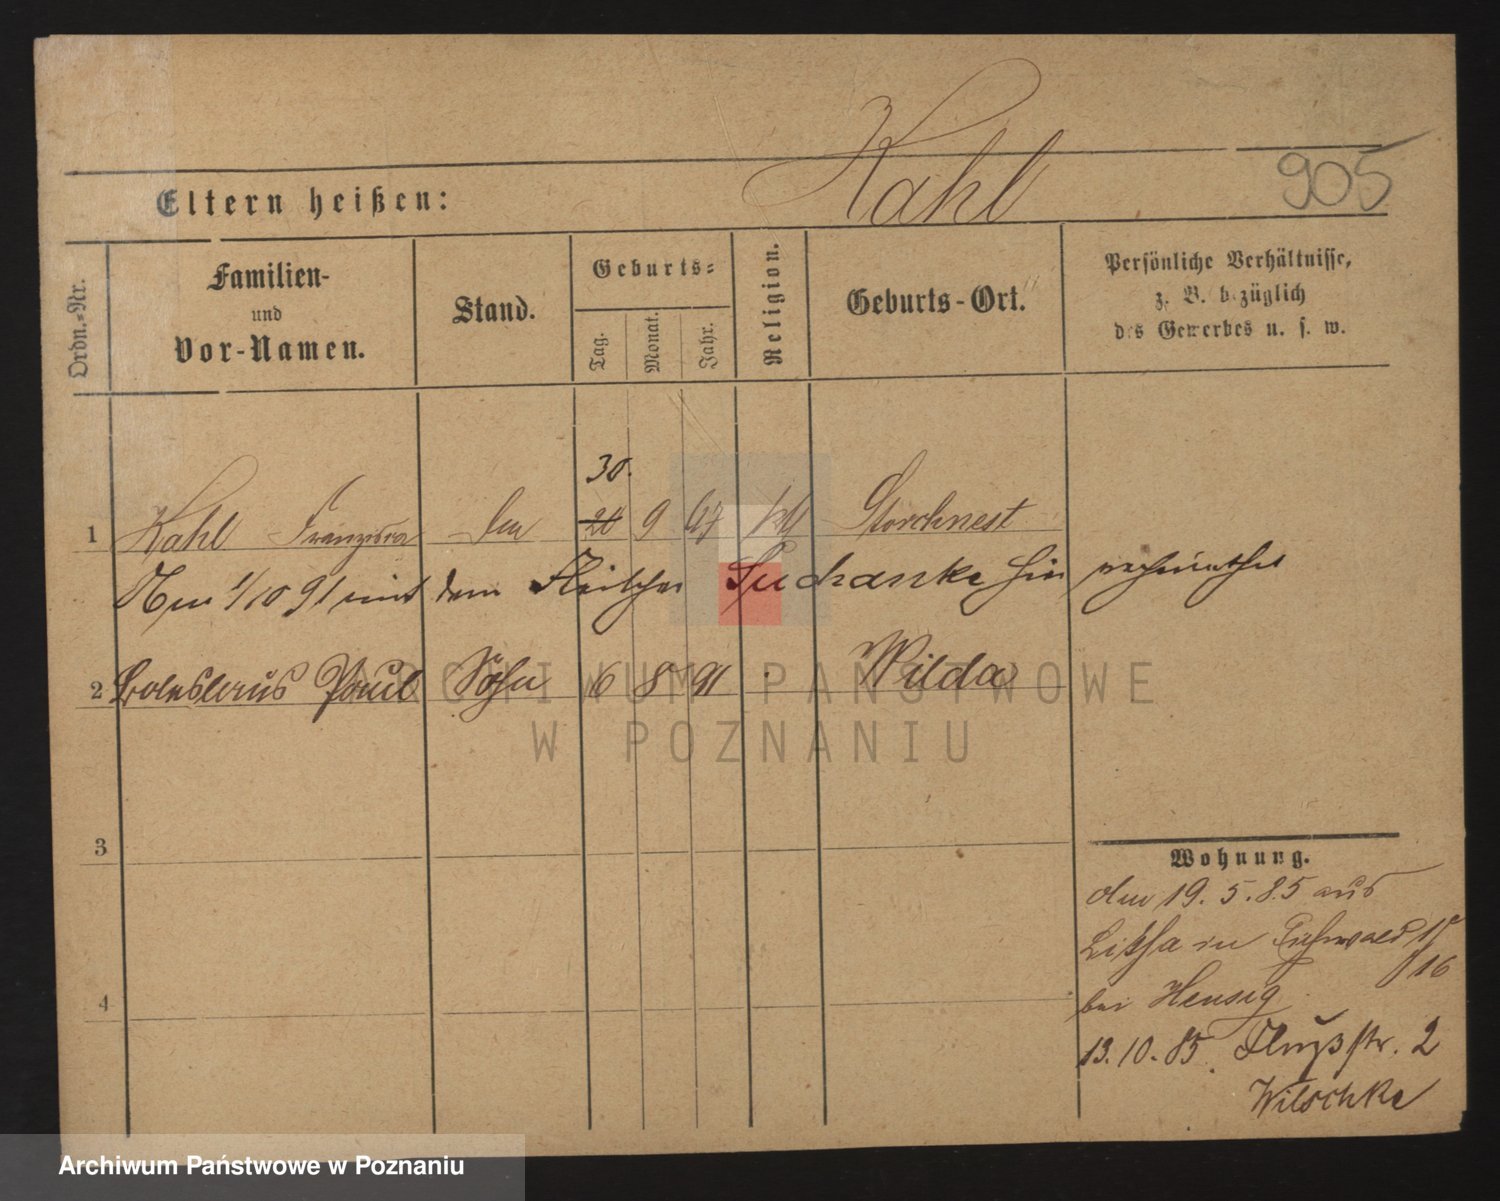 Kahl
905
Eltern heißen:
Ordn.-Nr.
Familien-
und
Vor-Namen.
Stand.
Geburts-
Tag.
Monat.
Jahr.
Religion.
Geburts-Ort.
Persönliche Verhältnisse,
z. B. bezüglich
des Gewerbes u. s. w.
30.
1 Kahl Franziska 20 9 67 kth Storchnest
1/10 91 mit dem Fleischer Suchanke hier verheirathet
2 Boleslaus Paul Sohn 6 8 91 Wilda
ARCHIWUM PAŃSTWOWE
W POZNANIU
3
4
Wohnung.
den 19. 5. 85 aus
in 15
/16
bei Hensig
13. 10. 85. Flußstr. 2
Witschke
Archiwum Państwowe w Poznaniu